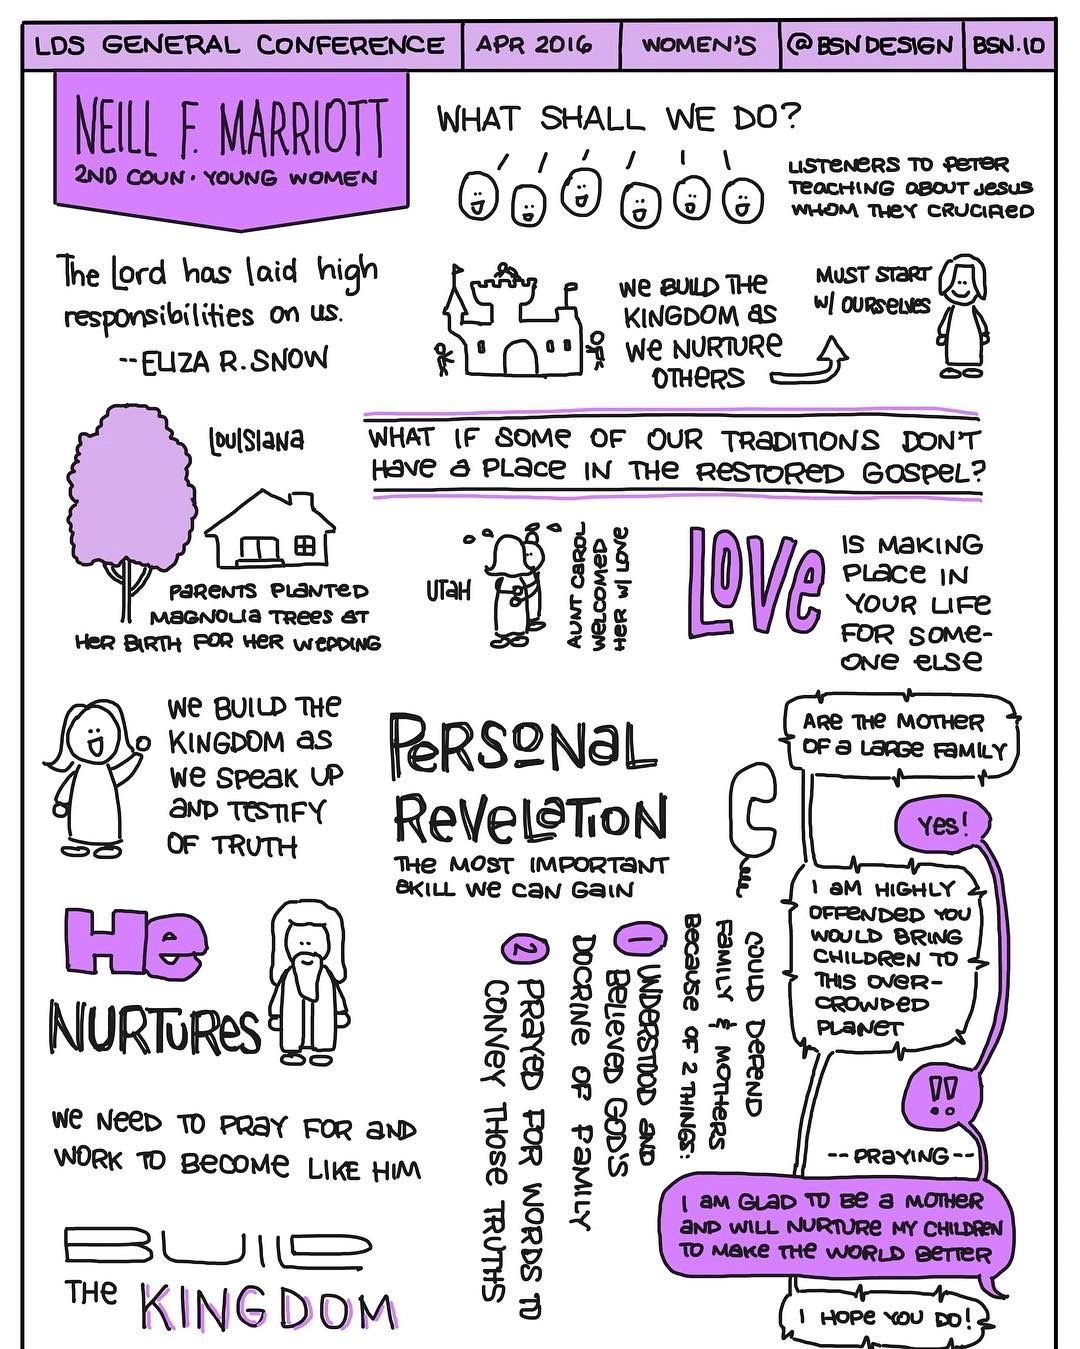 LDS GENERAL CONFERENCE
APR 2016
WOMEN'S
@BSNDESIGN
BSN.IO
NEILL F. MARRIOTT
2ND COUN · YOUNG WOMEN
WHAT SHALL WE DO?
LISTENERS TO PETER
TEACHING ABOUT JESUS
WHOM THEY CRUCIFIED
The Lord has laid high
responsibilities on us.
--ELIZA R. SNOW
WE BUILD THE
KINGDOM AS
WE NURTURE
OTHERS
MUST START
W/ OURSELVES
WHAT IF SOME OF OUR TRADITIONS DON'T
HAVE A PLACE IN THE RESTORED GOSPEL?
LOUISIANA
PARENTS PLANTED
MAGNOLIA TREES AT
HER BIRTH FOR HER WEDDING
UTAH
AUNT CAROL
WELCOMED
HER W/ LOVE
LOVE
IS MAKING
PLACE IN
YOUR LIFE
FOR SOME-
ONE ELSE
WE BUILD THE
KINGDOM AS
WE SPEAK UP
AND TESTIFY
OF TRUTH
PERSONAL
REVELATION
THE MOST IMPORTANT
SKILL WE CAN GAIN
ARE THE MOTHER
OF A LARGE FAMILY
YES!
I AM HIGHLY
OFFENDED YOU
WOULD BRING
CHILDREN TO
THIS OVER-
CROWDED
PLANET
!!
--PRAYING--
I AM GLAD TO BE A MOTHER
AND WILL NURTURE MY CHILDREN
TO MAKE THE WORLD BETTER
I HOPE YOU DO!
COULD DEFEND
FAMILY & MOTHERS
BECAUSE OF 2 THINGS:
1 UNDERSTOOD AND
BELIEVED GOD'S
DOCRINE OF FAMILY
2 PRAYED FOR WORDS TO
CONVEY THOSE TRUTHS
HE
NURTURES
WE NEED TO PRAY FOR AND
WORK TO BECOME LIKE HIM
BUILD
THE KINGDOM